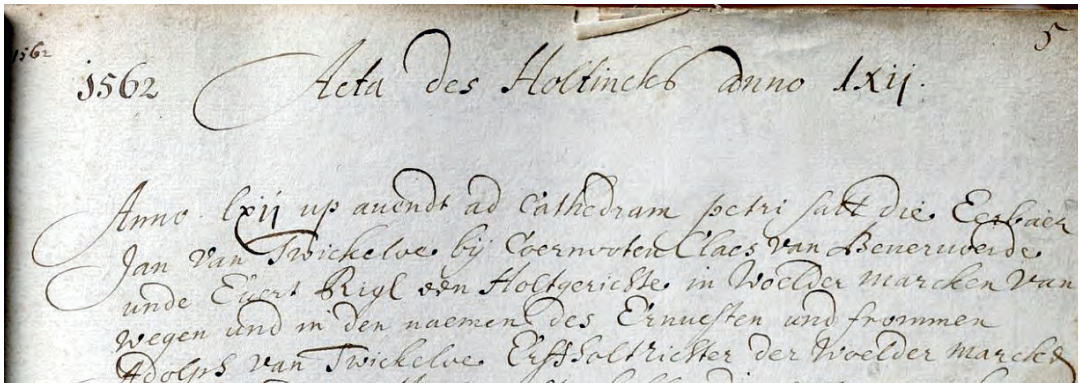 1562
5
1562 Acta des Holtincks anno lxij.
Anno lxij up auendt ad Cathedram petri satt die Eerbaer
Jan van Twickeloe bij Coernooten Claes van Beueruorde
unde Egert Rigl een Holtgerichte in Woelder marcken van
wegen und in den naemen des Ernuesten und frommen
Adolph van Twickeloe Erffholtrichter der Woelder marcken